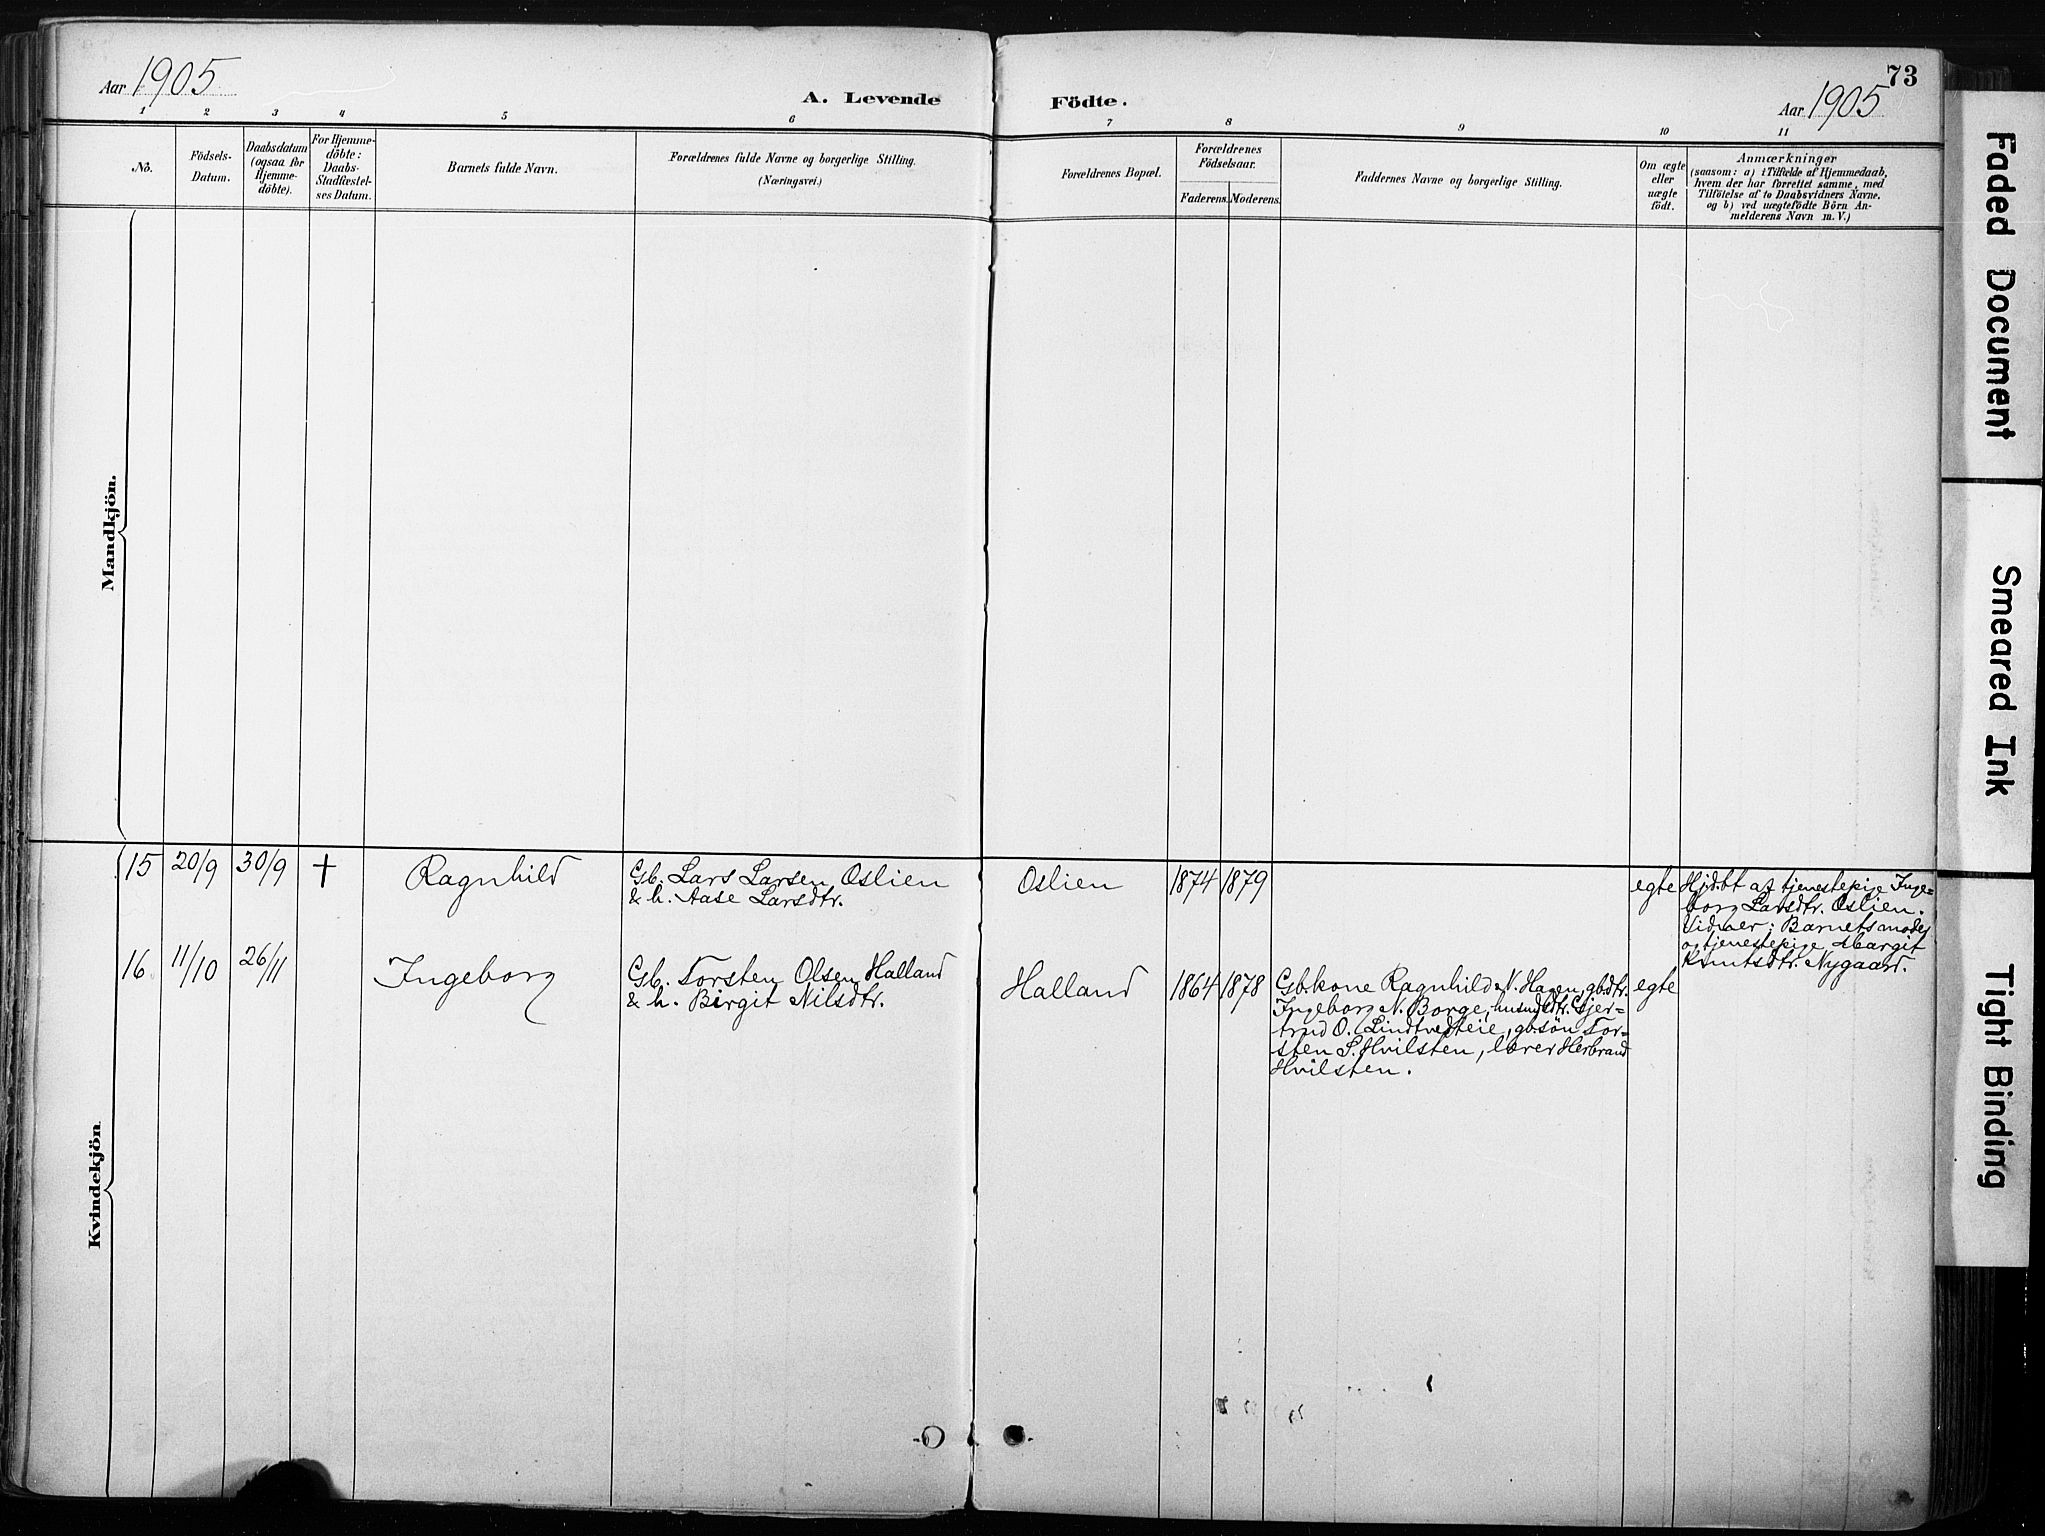 Aar 1905
A. Levende Födte.
73
Aar 1905
1 2 3 4 5 6 7 8 9 10 11
No.
Födsels-
Datum.
Daabsdatum
(ogsaa for
Hjemme-
döbte).
For Hjemme-
döbte:
Daabs-
Stadfæstel-
ses Datum.
Barnets fulde Navn.
Forældrenes fulde Navne og borgerlige Stilling.
(Næringsvei.)
Forældrenes Bopæl.
Forældrenes
Födselsaar.
Faderens. Moderens.
Faddernes Navne og borgerlige Stilling.
Om ægte
eller
uægte
födt.
Anmærkninger
(saasom: a) i Tilfælde af Hjemmedaab,
hvem der har forrettet samme, med
Tilföielse af to Daabsvidners Navne.
og b) ved uægtefödte Börn An-
melderens Navn m. V.)
Mandkjön.
Kvindekjön.
15 20/9 30/9 † Ragnhild
Gb. Lars Larsen Oslien
& h. Aase Larsdtr.
Oslien 1874 1879
egte
Hjdbt af tjenestepige Inge=
borg Larsdtr. Oslien.
Vidner: Barnets moder
og tjenestepige Margit
Knutsdtr. Nygaard.
16. 11/10 26/11 Ingeborg
Gb. Torsten Olsen Halland
& h. Birgit Nilsdtr.
Halland 1864 1878
Gb.kone Ragnhild N. Hagen, gb.dtr.
Ingeborg N. Borge, husmdtr. Gjer=
trud O. Lindtvedteie, gb.sön Tor=
sten S. Hvilsten, lærer Herbrand
Hvilsten.
egte
Faded Document
Smeared Ink
Tight Binding